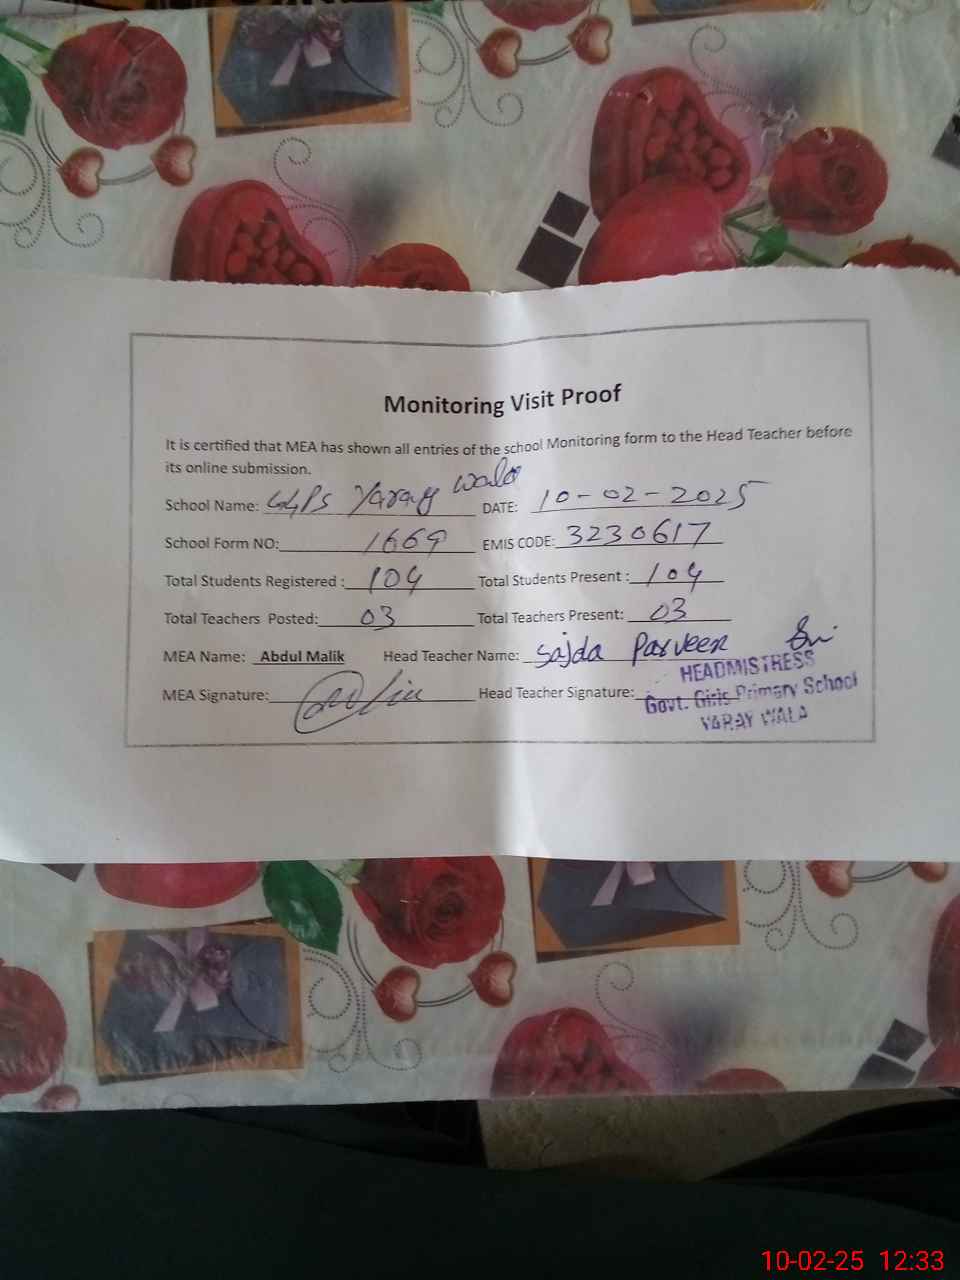 Monitoring Visit Proof
It is certified that MEA has shown all entries of the school Monitoring form to the Head Teacher before
its online submission.
School Name: GGPS Yaray Wala DATE: 10-02-2025
School Form NO: 1669 EMIS CODE: 3230617
Total Students Registered : 104 Total Students Present : 104
Total Teachers Posted: 03 Total Teachers Present: 03
MEA Name: Abdul Malik Head Teacher Name: Sajda Parveen
MEA Signature: Head Teacher Signature:
HEADMISTRESS
Govt. Girls Primary School
YARAY WALA
10-02-25 12:33